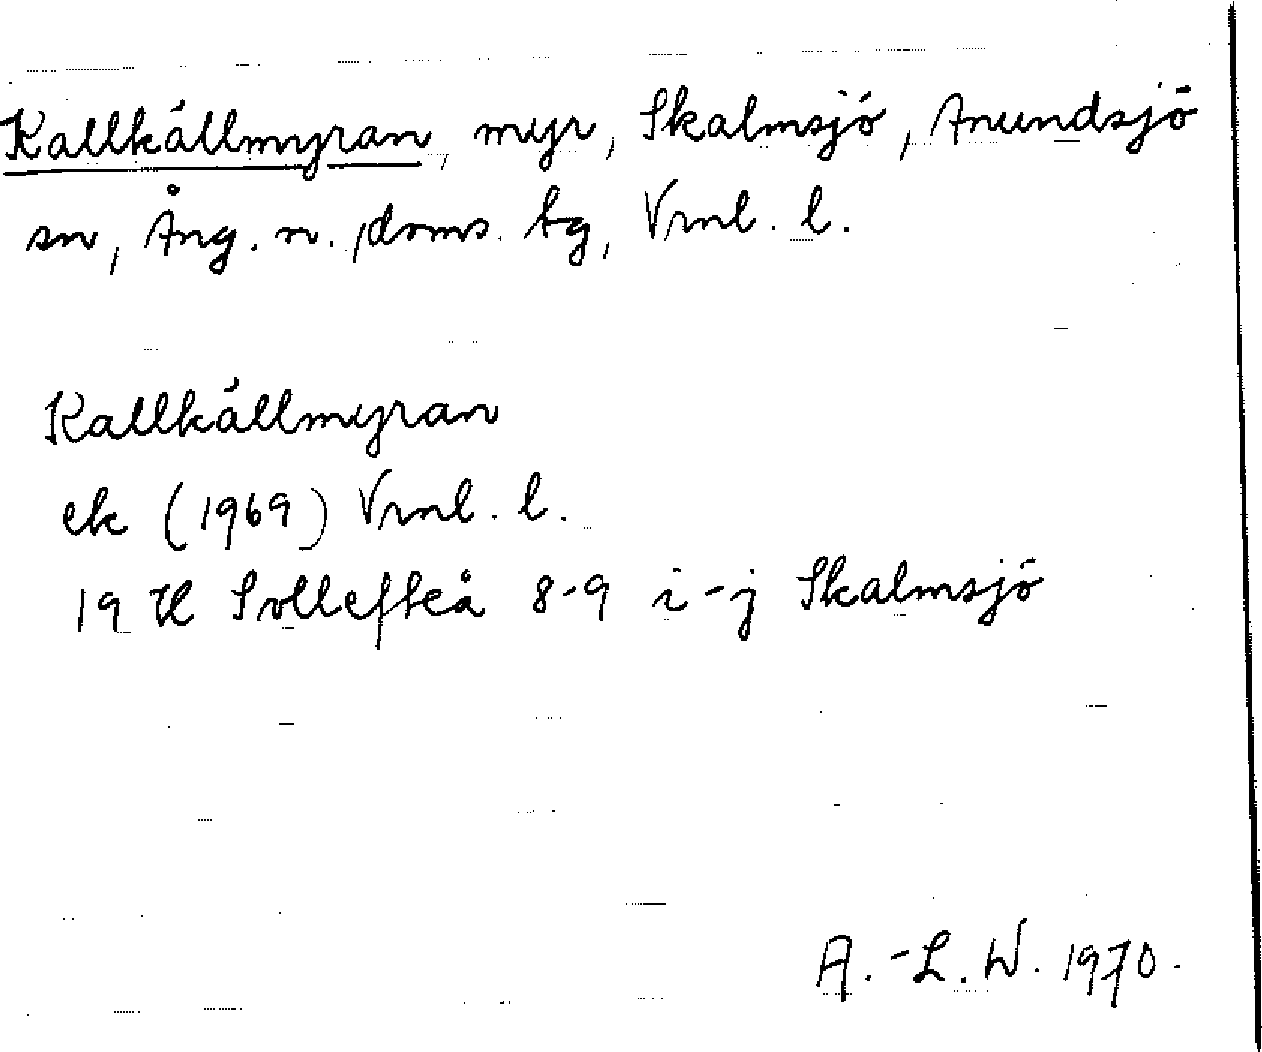 Kallkällmyran, myr, Skalmsjö, Anundsjö
sn, Ång. n. doms. bg, Vrml. l.
Kallkällmyran
ek (1969) Vrml. l.
19 H Sollefteå 8-9 i-j Skalmsjö
A.-L. W. 1970.